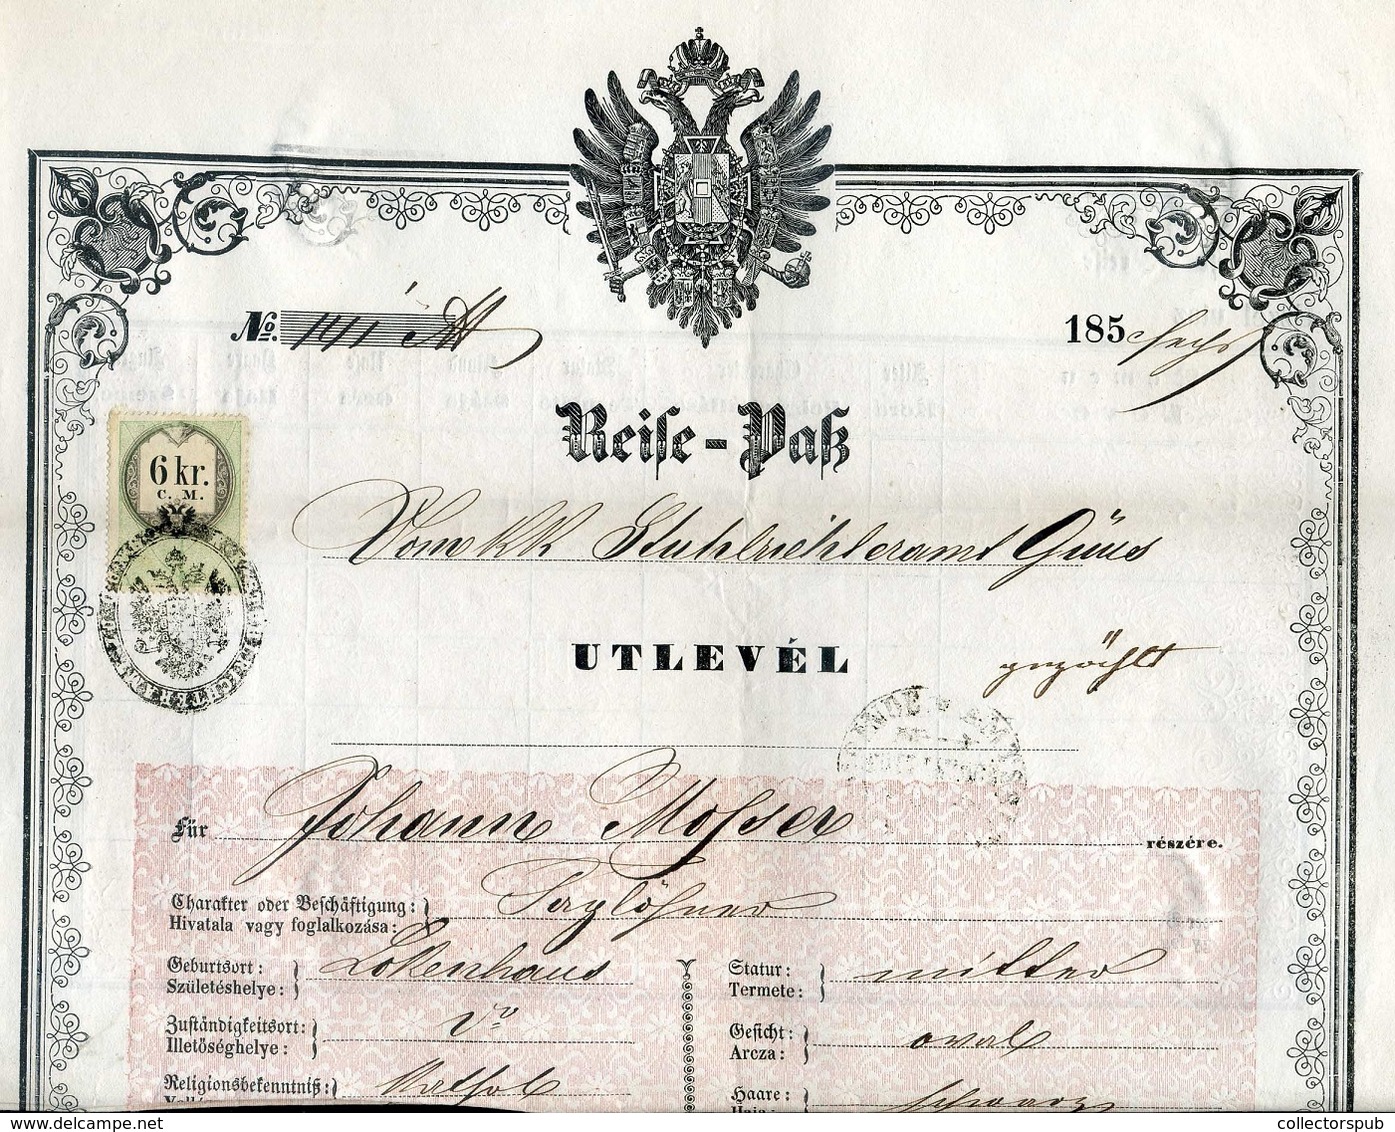 No. 141
185 sechs
6 kr.
C. M.
Reise-Paß
Vom KK Stuhlrichteramt Güns
UTLEVÉL
gezählt
Für Johann Mosser részére.
Charakter oder Beschäftigung: Taglöhner
Hivatala vagy foglalkozása:
Geburtsort: Lokenhaus
Születéshelye:
Statur: mittel
Termete:
Zuständigkeitsort: dto
Illetőséghelye:
Gesicht: oval
Arcza:
Religionsbekenntniß: Kathol
Haare: schwarz
Haja:
collectorspub